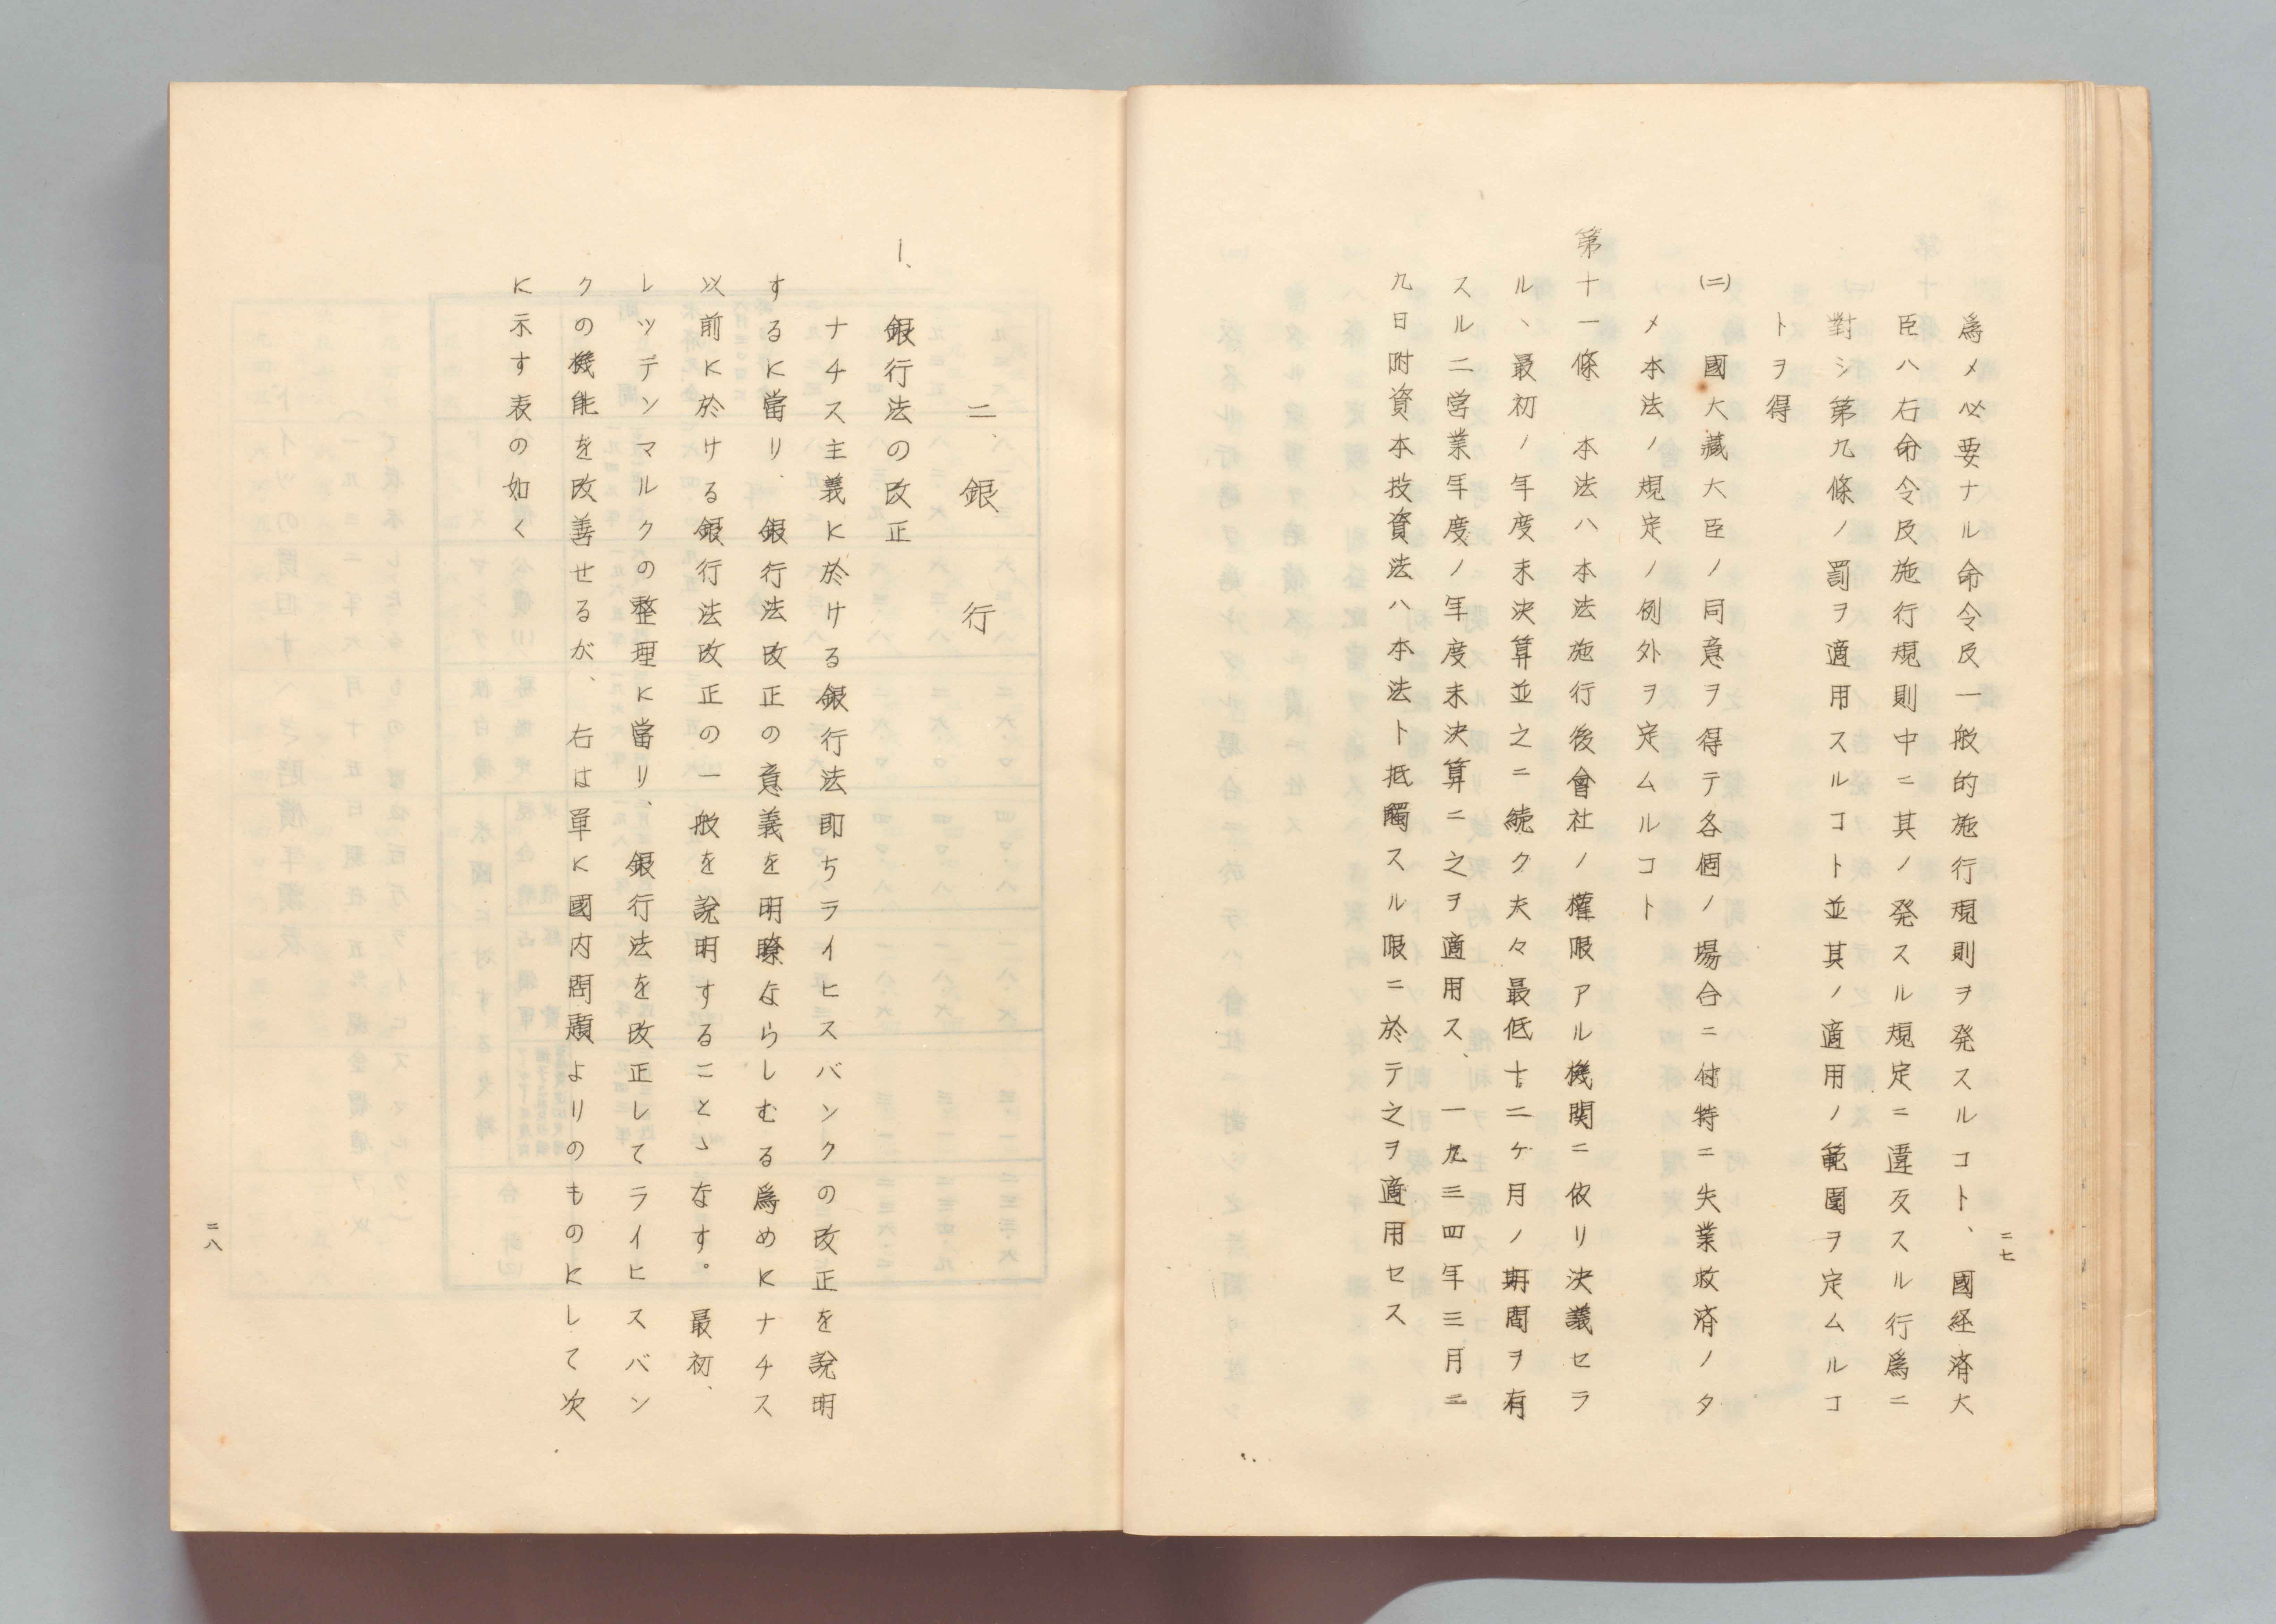 爲メ必要ナル命令及一般的施行規則ヲ発スルコト、國経済大
臣ハ右命令及施行規則中ニ其ノ発スル規定ニ違反スル行爲ニ
對シ第九條ノ罰ヲ適用スルコト並其ノ適用ノ範圍ヲ定ムルコ
トヲ得
(二)　國大藏大臣ノ同意ヲ得テ各個ノ場合ニ付特ニ失業救済ノタ
メ本法ノ規定ノ例外ヲ定ムルコト
第十一條　本法ハ本法施行後會社ノ權限アル機関ニ依リ決議セラ
ル丶最初ノ年度末決算並之ニ続ク夫々最低十二ケ月ノ期間ヲ有
スル二営業年度ノ年度末決算ニ之ヲ適用ス、一九三四年三月二
九日附資本投資法ハ本法ト抵觸スル限ニ於テ之ヲ適用セス
二七
二、銀行
1、銀行法の改正
ナチス主義に於ける銀行法即ちライヒスバンクの改正を説明
するに當り、銀行法改正の意義を明瞭ならしむる爲めにナチス
以前に於ける銀行法改正の一般を説明することゝなす。最初、
レッテンマルクの整理に當り、銀行法を改正してライヒスバン
クの機能を改善せるが、右は單に國内問題よりのものにして次
に示す表の如く
二八